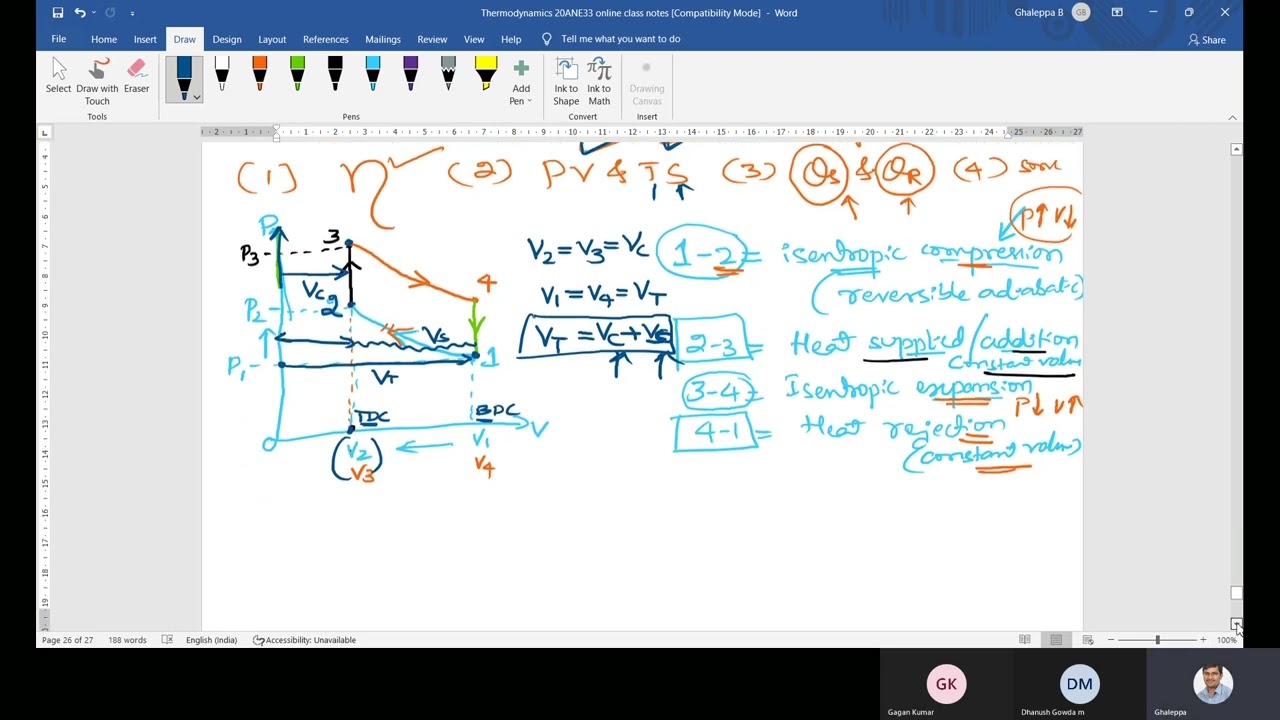 Thermodynamics 20ANE33 online class notes [Compatibility Mode] - Word
Ghaleppa B
GB
File Home Insert Draw Design Layout References Mailings Review View Help Tell me what you want to do
Share
Select
Draw with Touch
Eraser
Add Pen
Ink to Shape
Ink to Math
Drawing Canvas
Tools
Pens
Convert
Insert
2 1 1 2 3 4 5 6 7 8 9 10 11 12 13 14 15 16 17 18 19 20 21 22 23 24 25 26 27
(1) η (2) PV & TS (3) Qs & QR (4) some
P↑ V↓
P
P3
3
Vc
P2
2
4
Vs
P1
1
VT
TDC
BDC
V
V2
V3
V1
V4
0
V2 = V3 = Vc
V1 = V4 = VT
VT = Vc + Vs
1-2 = isentropic compression
(reversible adiabatic)
2-3 = Heat supplied/addition
Constant volume
3-4 = Isentropic expansion
P↓ V↑
4-1 = Heat rejection
(constant volume)
Page 26 of 27 188 words English (India) Accessibility: Unavailable 100%
GK
Gagan Kumar
DM
Dhanush Gowda m
Ghaleppa